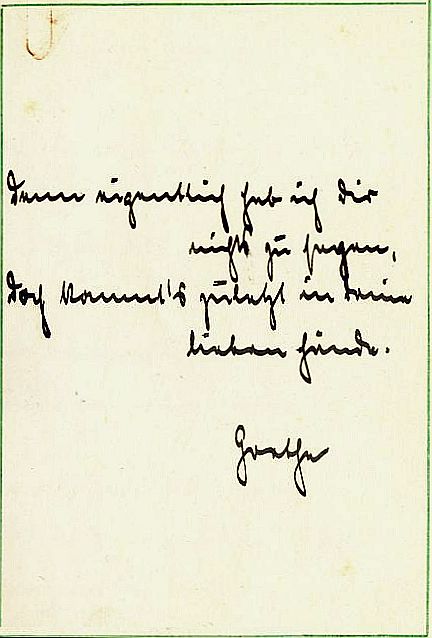 Denn eigentlich hab ich dir
nichts zu sagen,
Doch kommt's zuletzt in deine
lieben Hände.
Goethe